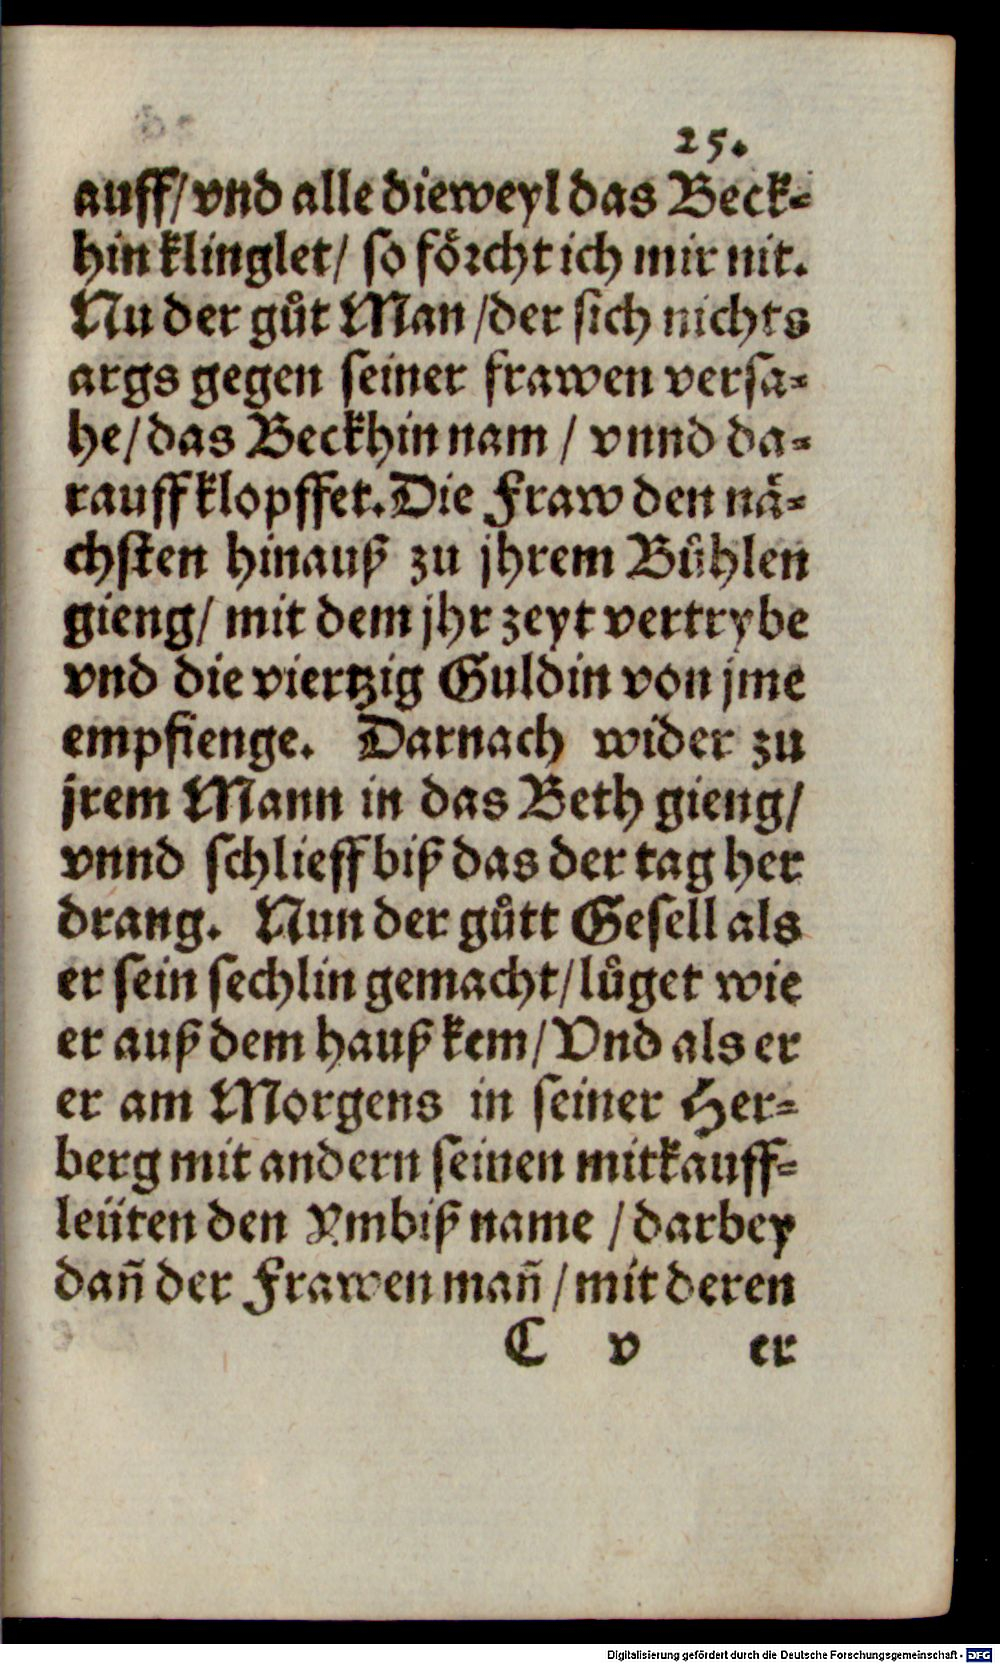 25.
auff/ vnd alle dieweyl das Beck-
hin klinglet/ so förcht ich mir nit.
Nu der gůt Man /der sich nichts
args gegen seiner frawen versa-
he/ das Beckhin nam / vnnd da-
rauff klopffet. Die Fraw den nä-
chsten hinauß zu jhrem Bůhlen
gieng/ mit dem jhr zeyt vertrybe
vnd die viertzig Guldin von jme
empfienge. Darnach wider zu
jrem Mann in das Beth gieng/
vnnd schlieff biß das der tag her
drang. Nun der gůtt Gesell als
er sein sechlin gemacht/ lůget wie
er auß dem hauß kem/ Vnd als er
er am Morgens in seiner Her-
berg mit andern seinen mitkauff-
leüten den Ymbiß name / darbey
dañ der Frawen mañ / mit deren
C v er
Digitalisierung gefördert durch die Deutsche Forschungsgemeinschaft - DFG